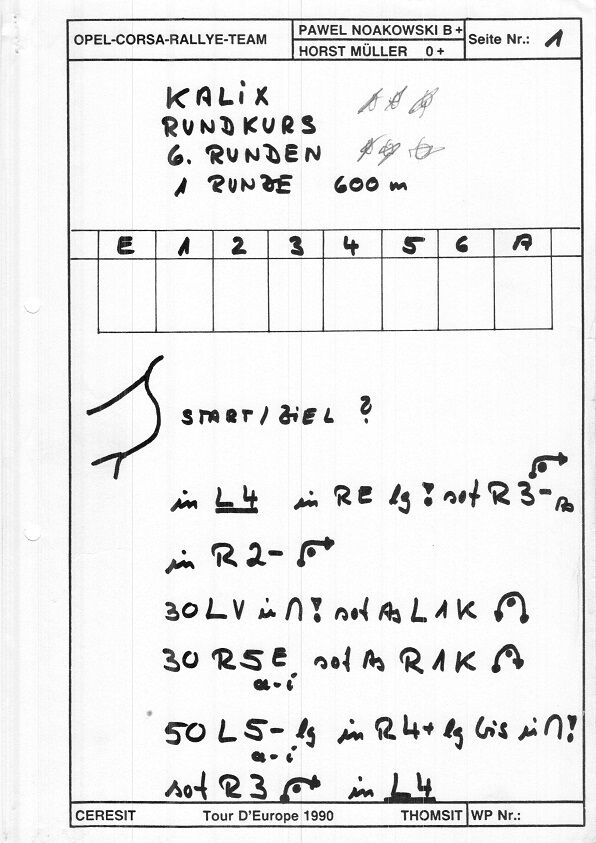 OPEL-CORSA-RALLYE-TEAM
PAWEL NOAKOWSKI B +
HORST MÜLLER 0 +
Seite Nr.: 1
KALiX
RUNDKURS
6. RUNDEN
1 RUNDE 600 m
E 1 2 3 4 5 6 A
START/ZIEL ?
in L4 in RE lg ! sof R3-
in R2-
30 LV in ∩! sof As L1K
30 R5E sof As R1K
a-i
50 L5- lg in R4+ lg bis in ∩!
a-i
sof R3 in L4
CERESIT Tour D'Europe 1990 THOMSIT WP Nr.: